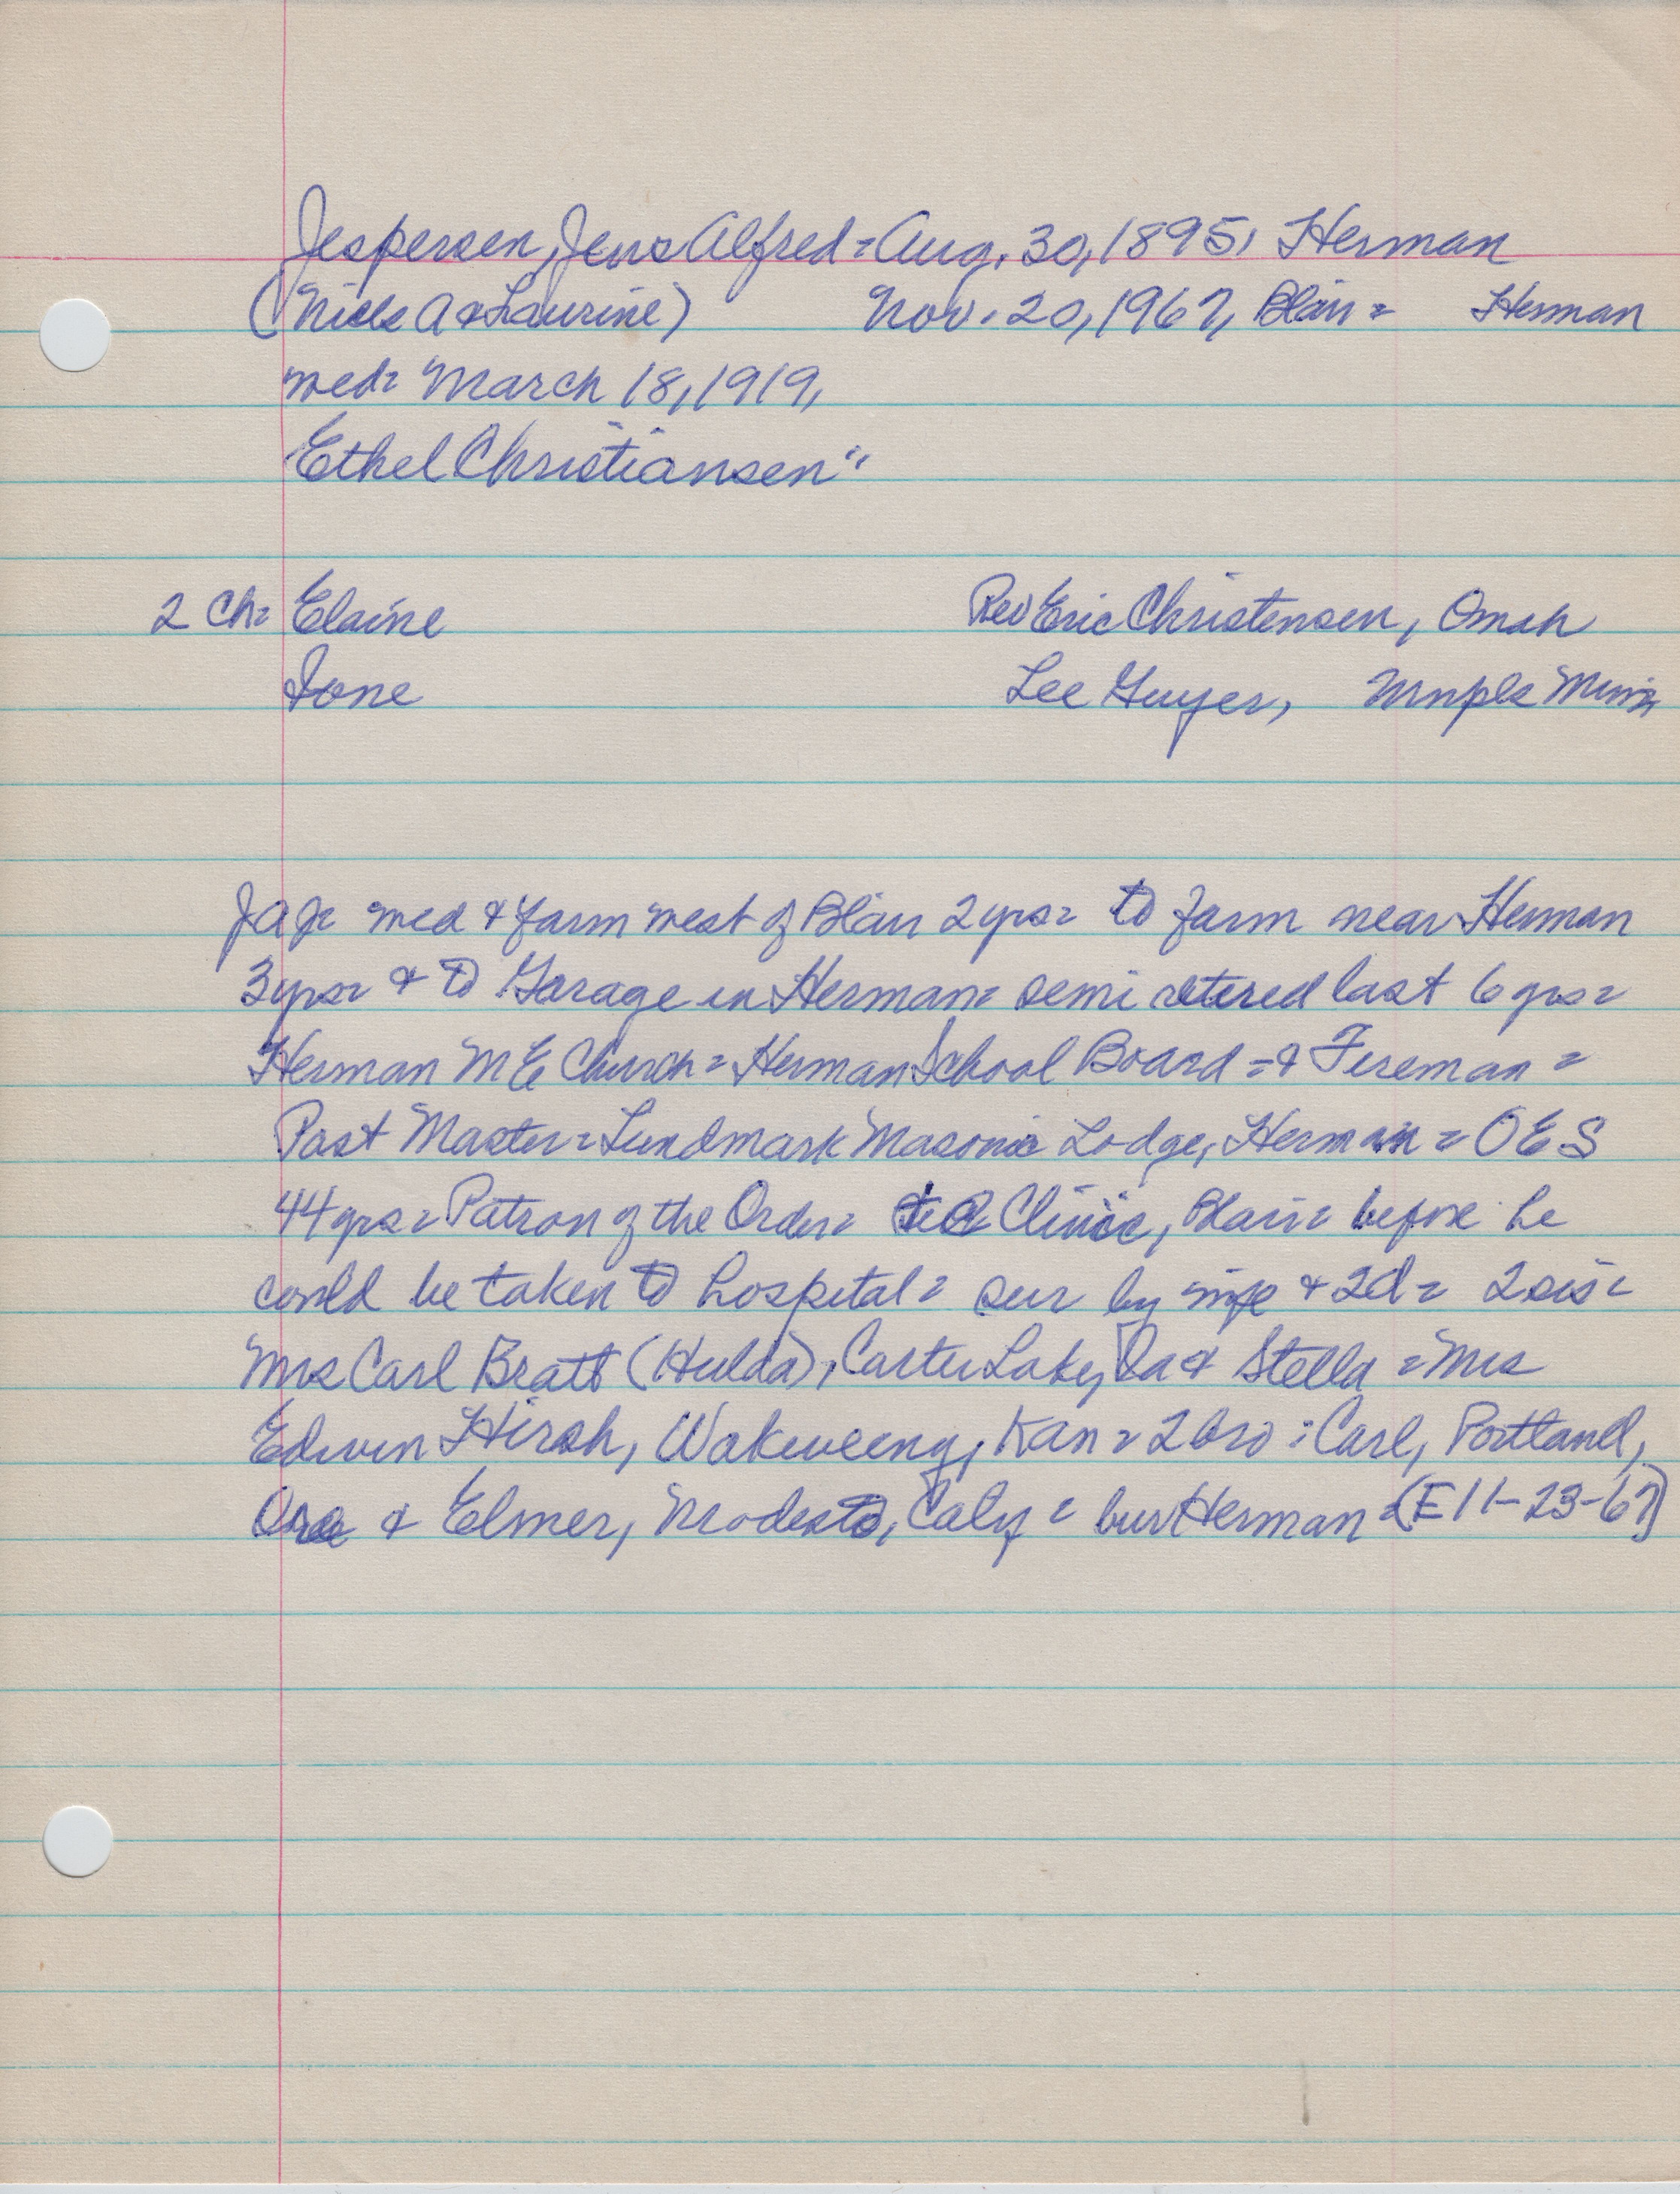 Jespersen, Jens Alfred = Aug. 30, 1895, Herman
(Niels A & Laurine) Nov. 20, 1967, Blair = Herman
wed = March 18, 1919,
Ethel Christiansen "
2 Ch = Elaine Rev Eric Christensen, Omah
Ione Lee Guyer, Mnpls Minn
JAJ = wed & farm west of Blair 2 yrs = to farm near Herman
3 yrs = & to Garage in Herman = semi retired last 6 yrs =
Herman M E Church = Herman School Board = & Fireman =
Past Master = Landmark Masonic Lodge, Herman = O E S
44 yrs = Patron of the Order = Clinic, Blair = before he
could be taken to hospital = sur by wife & 2d = 2 sis =
Mrs Carl Bratt (Hulda), Carter Lake, Ia & Stella = Mrs
Edwin Hirsh, Wakeeney, Kan = 2 bro : Carl, Portland,
Ore & Elmer, Modesto, Calif = bur Herman = (E 11-23-67)